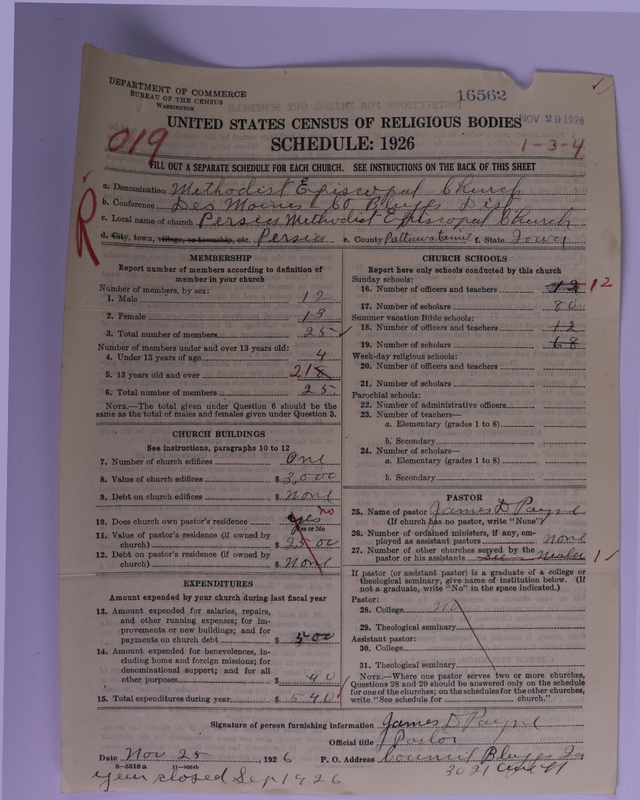 DEPARTMENT OF COMMERCE
BUREAU OF THE CENSUS
WASHINGTON
16562
NOV 29 1926
UNITED STATES CENSUS OF RELIGIOUS BODIES
019
SCHEDULE: 1926
1-3-4
FILL OUT A SEPARATE SCHEDULE FOR EACH CHURCH. SEE INSTRUCTIONS ON THE BACK OF THIS SHEET
R
a. Denomination Methodist Episcopal Church
b. Conference Des Moines Co Bluffs Dist
c. Local name of church Persia Methodist Episcopal Church
d. City, town, village, or township, etc. Persia e. County Pattawatamie f. State Iowa
MEMBERSHIP
Report number of members according to definition of member in your church
Number of members, by sex:
1. Male 12
2. Female 13
3. Total number of members 25
Number of members under and over 13 years old:
4. Under 13 years of age 4
5. 13 years old and over 21
6. Total number of members 25
NOTE.—The total given under Question 6 should be the same as the total of males and females given under Question 3.
CHURCH BUILDINGS
See instructions, paragraphs 10 to 12
7. Number of church edifices One
8. Value of church edifices $ 3,000
9. Debt on church edifices $ None
10. Does church own pastor's residence yes no
Yes or No
11. Value of pastor's residence (if owned by church) $ 2500
12. Debt on pastor's residence (if owned by church) $ None
EXPENDITURES
Amount expended by your church during last fiscal year
13. Amount expended for salaries, repairs, and other running expenses; for improvements or new buildings; and for payments on church debt $ 500
14. Amount expended for benevolences, including home and foreign missions; for denominational support; and for all other purposes $ 40
15. Total expenditures during year $ 540
CHURCH SCHOOLS
Report here only schools conducted by this church
Sunday schools:
16. Number of officers and teachers 12 12
17. Number of scholars 80
Summer vacation Bible schools:
18. Number of officers and teachers 12
19. Number of scholars 68
Week-day religious schools:
20. Number of officers and teachers
21. Number of scholars
Parochial schools:
22. Number of administrative officers
23. Number of teachers—
a. Elementary (grades 1 to 8)
b. Secondary
24. Number of scholars—
a. Elementary (grades 1 to 8)
b. Secondary
PASTOR
25. Name of pastor James D Payne
(If church has no pastor, write "None")
26. Number of ordained ministers, if any, employed as assistant pastors none
27. Number of other churches served by the pastor or his assistants 1
If pastor (or assistant pastor) is a graduate of a college or theological seminary, give name of institution below. (If not a graduate, write "No" in the space indicated.)
Pastor:
28. College no
29. Theological seminary
Assistant pastor:
30. College
31. Theological seminary
NOTE.—Where one pastor serves two or more churches, Questions 28 and 29 should be answered only on the schedule for one of the churches; on the schedules for the other churches, write "See schedule for ______ church."
Signature of person furnishing information James D. Payne
Official title Pastor
Date Nov 25, 1926 P. O. Address Council Bluffs Ia
8—5518 a
year closed Sep 1926